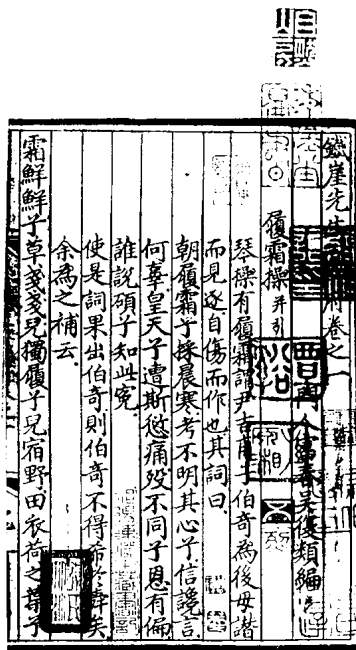 鐵崖先生古樂府卷之一
富春吳復類編
履霜操 并引
琴操有履霜謂尹吉甫子伯奇為後母譖
而見逐自傷而作也其詞曰
朝履霜兮採晨寒考不明其心兮信讒言
何辜皇天兮遭斯愆痛殁不同兮恩有偏
誰說碩兮知此冤
使是詞果出伯奇則伯奇不得希於舜矣
余為之補云
霜鮮鮮兮草戔戔兒獨履兮兒宿野田衣荷之葉兮